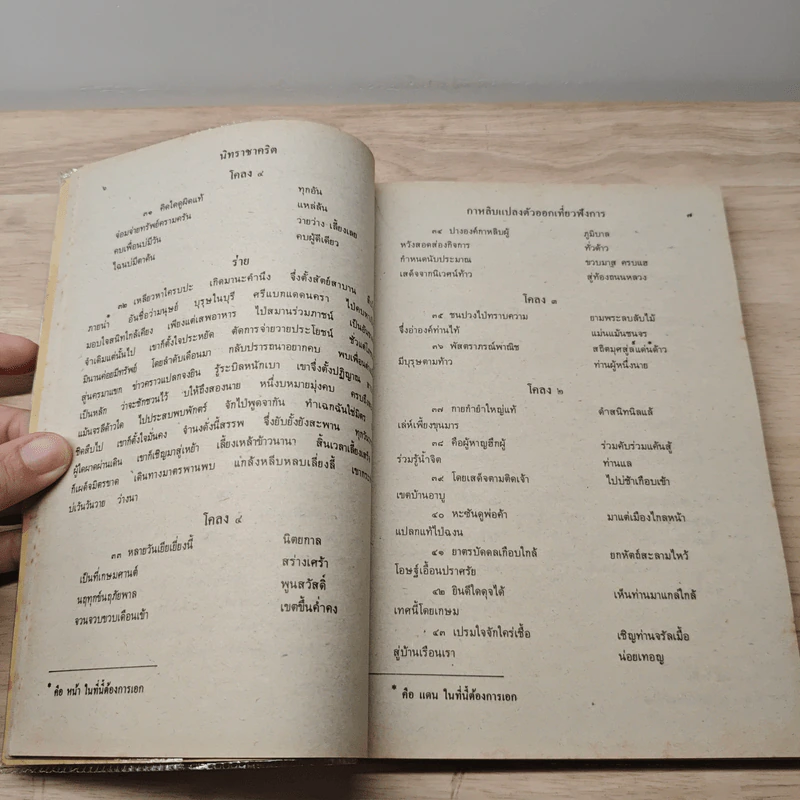 ๖
นิทราชาคริต
โคลง ๔
๓๑ คิดใดดูผิดแท้ ทุกอัน
จ่อมจ่ายทรัพย์ครามครัน แหล่ล้น
คบเพื่อนปมีวัน วายว่าง เลี้ยงเลย
ไฉนปมีตาค้น คบผู้ดีเดียว
ร่าย
๓๒ เหลียวหาใครบปะ เกิดมานะคำนึง จึ่งตั้งสัตย์สาบาน
ภายน่ำ* อันชื่อว่ามนุษย์ บุรุษในบุรี ศรีแบกแดดนครา ไป่คบหา
มอบใจสนิทใกล้เคียง เพียงแต่เสพอาหาร ไปสมานร่วมภาชน์ เป็น
จำเดิมแต่นั้นไป เขาก็ตั้งใจประหยัด ตัดการจ่ายวายประโยชน์ ชั่วแต่
มีนานค่อยมีทรัพย์ โดยลำดับเดือนมา กลับปรารถนาอยากคบ พบเพื่อน
สู่นครมาแขก ข่าวคราวแปลกจงยิน รู้ระบิลหนักเบา เขาจึ่งตั้งปฏิญาณ
เป็นหลัก ว่าจะชักชวนไว้ บให้ถึงสองนาย หนึ่งบหมายมุ่งคบ ครบ
แม้นจรลีด้าวใด ไปประสบพบพักตร์ จักไป่พูดจากัน ทำเฉกฉันใช่มิตร
ชิดสืบไป เขาก็ตั้งใจมั่นคง จำนงดังนี้สรรพ จึ่งยับยั้งยังสะพาน ทุกวัน
ผู้ใดผาดผ่านเดิน เขาก็เชิญมาสู่เหย้า เลี้ยงเหล้าข้าวนานา สิ้นเวลาเลี้ยง
ก็เผด็จมิตรขาด เดินทางมาตรพานพบ แกล้งหลีบหลบเลี่ยงลี้
บเว้นวันวาย ว่างนา
โคลง ๔
๓๓ หลายวันเยียเยี่ยงนี้ นิตยกาล
เป็นที่เกษมศานต์ สร่างเศร้า
นฤทุกข์นฤภัยพาล พูนสวัสดิ์
จวนจวบขวบเดือนเช้า เขตขึ้นค่ำคง
* คือ หน้า ในที่นี้ต้องการเอก
กาหลิบแปลงตัวออกเที่ยวฟังการ
๗
๓๔ ปางองค์กาหลิบผู้ ภูมิบาล
หวังสอดส่องกิจการ ทั่วด้าว
กำหนดนับประมาณ ขวบมาส ครบแฮ
เสด็จจากนิเวศน์ท้าว สู่ท้องถนนหลวง
โคลง ๓
๓๕ ชนปวงไป่ทราบความ ยามพระลบลับไม้
จึ่งอ่าองค์ท่านไท้ แม่นแม้นชนจร
๓๖ พัสตราภรณ์พาณิช สถิตมุศสุล์แด่น*ด้าว
มีบุรุษตามท้าว ท่านผู้หนึ่งนาย
โคลง ๒
๓๗ กายกำยำใหญ่แท้ ดำสนิทนิลแล้
เล่ห์เพี้ยงขุนมาร
๓๘ คือผู้หาญฮึกผู้ ร่วมคับร่วมแค้นสู้
ร่วมรู้น้ำจิต ท่านแล
๓๙ โดยเสด็จตามติดเจ้า ไปบ่ช้าเกือบเข้า
เขตบ้านอาบู
๔๐ หะซันดูพ่อค้า มาแต่เมืองไกลหน้า
แปลกแท้ไป่ฉงน
๔๑ ยาตรบัดดลเกือบใกล้ ยกหัตถ์สะลามไหว้
โอษฐ์เอื้อนปราศรัย
๔๒ ยินดีใดดุจได้ เห็นท่านมาแกล่ใกล้
เทศนี้โดยเกษม
๔๓ เปรมใจจักใคร่เชื้อ เชิญท่านจรัลเมื้อ
สู่บ้านเรือนเรา น่อยเทอญ
* คือ แดน ในที่นี้ต้องการเอก